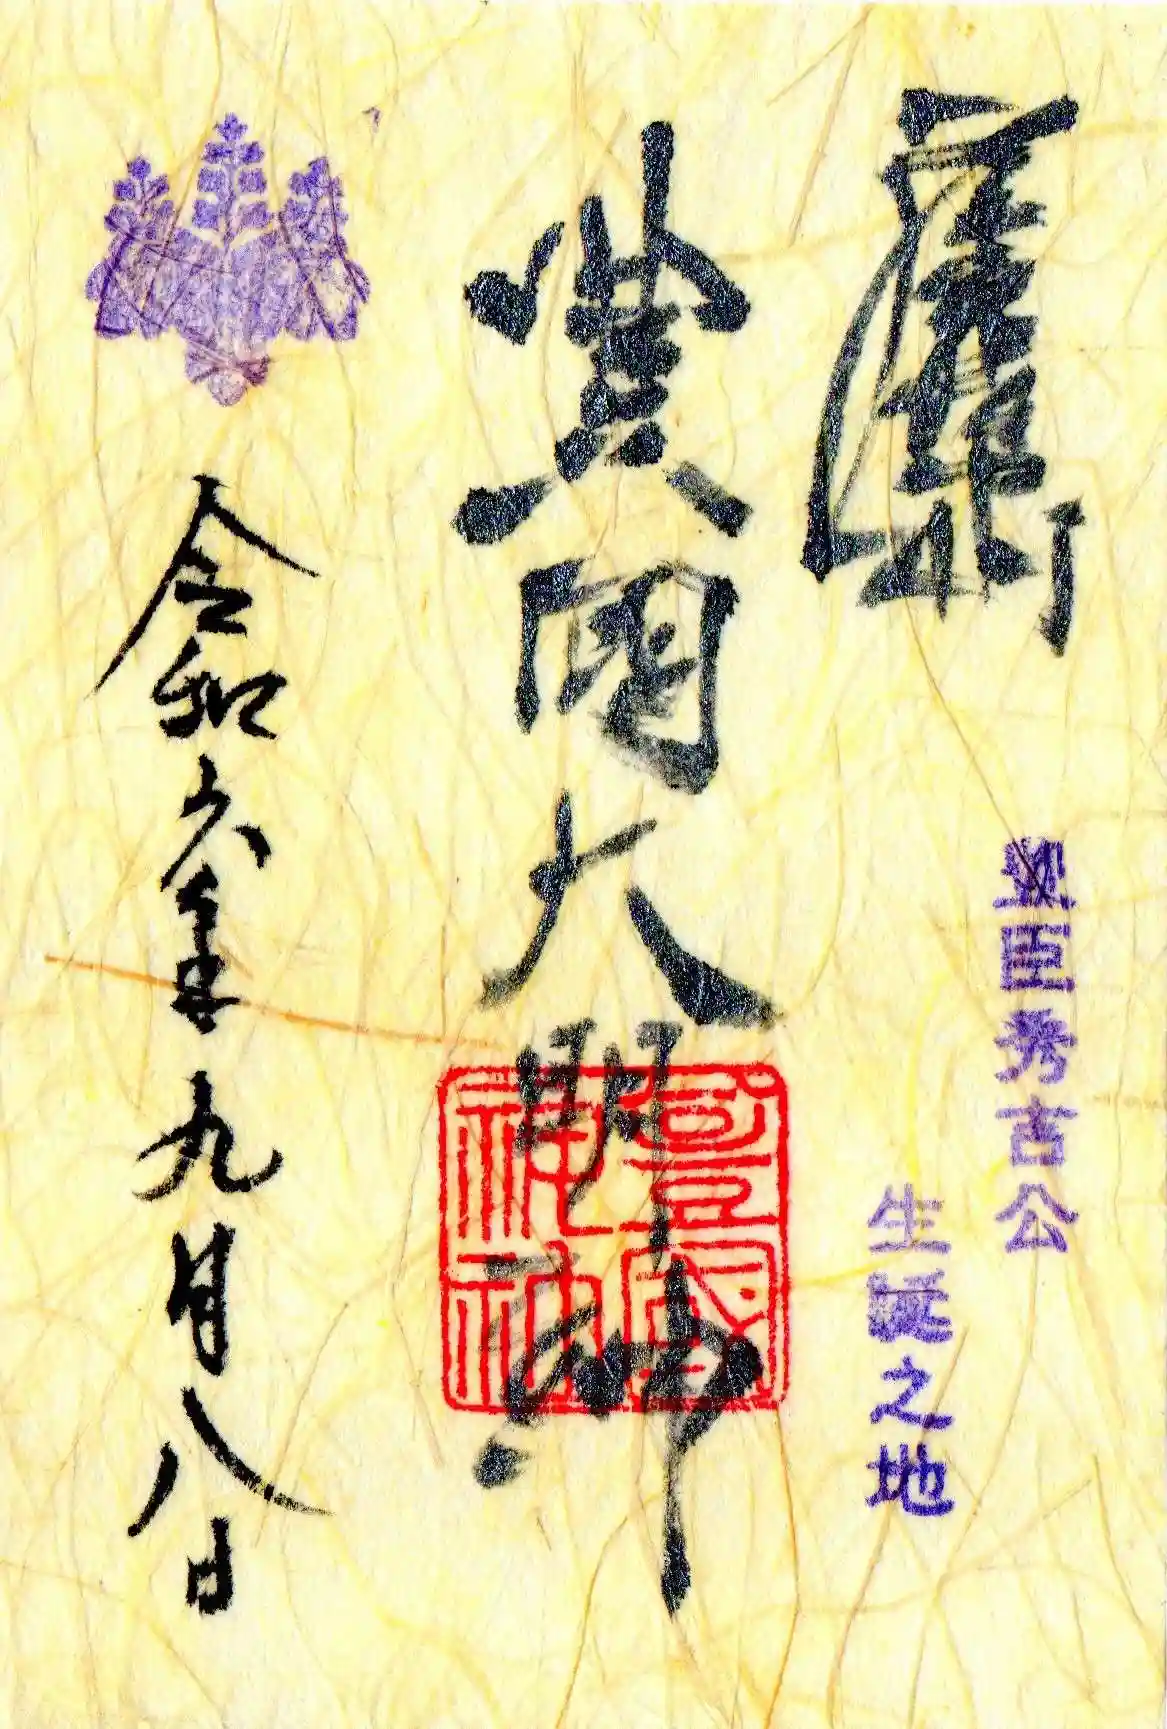 豊臣秀吉公
生誕之地
豊國大明神
豊國神社
令和六年九月八日